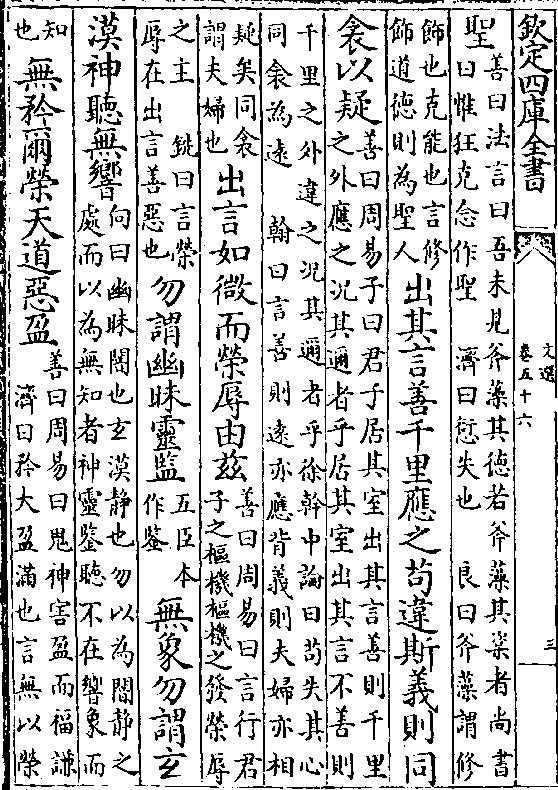 欽定四庫全書
文選
卷五十六
三
聖
善曰法言曰吾未見斧藻其德若斧藻其楶者尚書
曰惟狂克念作聖 濟曰愆失也 良曰斧藻謂修
飾也克能也言修
飾道德則為聖人
出其言善千里應之苟違斯義則同
衾以疑
善曰周易子曰君子居其室出其言善則千里
之外應之况其邇者乎居其室出其言不善則
千里之外違之况其邇者乎徐幹中論曰苟失其心
同衾為遠 翰曰言善則遠亦應背義則夫婦亦相
疑矣同衾
謂夫婦也
出言如微而榮辱由兹
善曰周易曰言行君
子之樞機樞機之發榮辱
之主 銑曰言榮
辱在出言善惡也
勿謂幽昧靈監
五臣本
作鑒
無象勿謂玄
漠神聽無響
向曰幽昧闇也玄漠静也勿以為闇静之
處而以為無知者神靈鑒聽不在響象而
知
也
無矜爾榮天道惡盈
善曰周易曰鬼神害盈而福謙
濟曰矜大盈滿也言無以榮